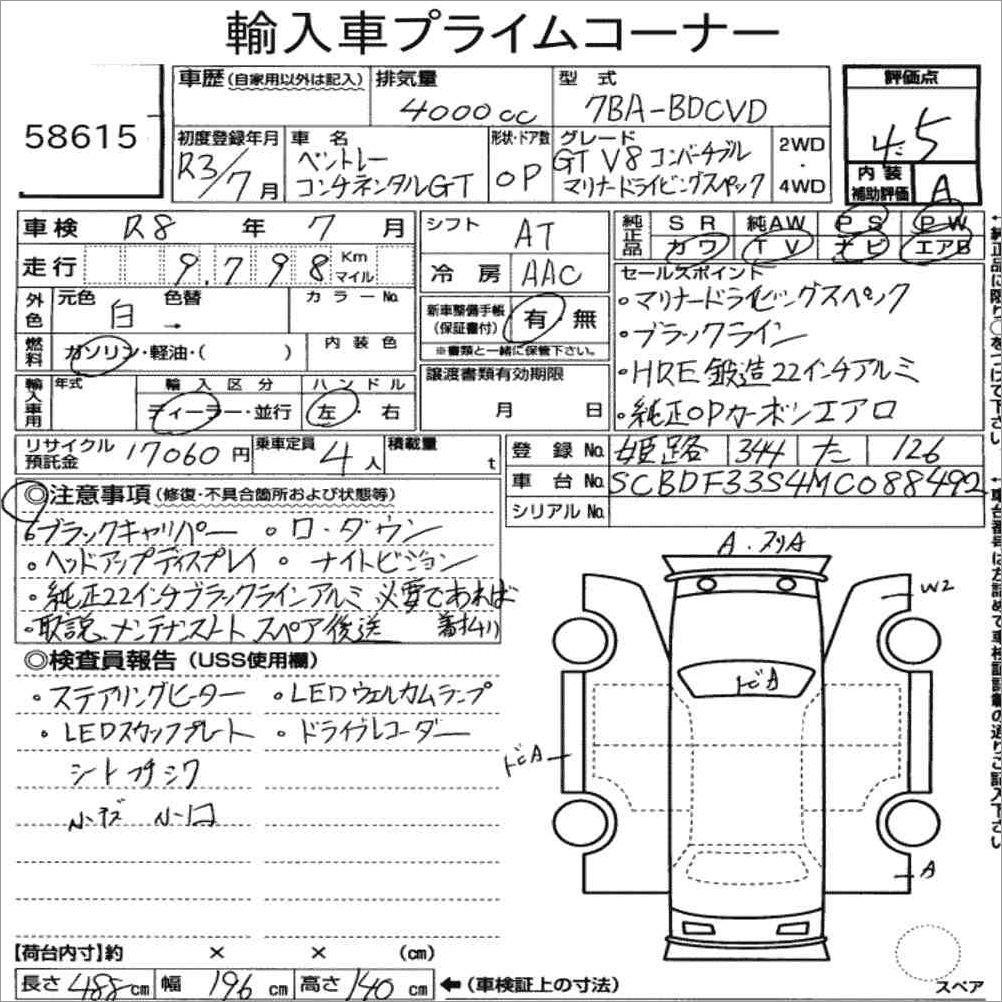 輸入車プライムコーナー
58615
車歴(自家用以外は記入)
排気量
4000cc
型式
7BA-BDCVD
評価点
4.5
初度登録年月
R3/7月
車名
ベントレー
コンチネンタルGT
形状・ドア数
OP
グレード
GT V8 コンバーチブル
マリナードライビングスペック
2WD
・
4WD
内装
補助評価
A
車検 R8年7月
シフト AT
純正品
SR 純AW PS PW
カワ TV ナビ エアB
走行 9,798 Km マイル
冷房 AAC
セールスポイント
・マリナードライビングスペック
・ブラックライン
・HRE鍛造22インチアルミ
・純正OPカーボンエアロ
外色
元色 白 → 色替
カラーNo.
新車整備手帳
(保証書付)
有 無
※書類と一緒に保管下さい。
燃料
ガソリン・軽油・( )
内装色
輸入車用
年式
輸入区分
ディーラー・並行
ハンドル
左・右
譲渡書類有効期限
月 日
リサイクル
預託金
17060円
乗車定員 4人
積載量 t
登録No. 姫路 344 た 126
車台No. SCBDF33S4MC088492
シリアルNo.
◎注意事項(修復・不具合箇所および状態等)
ブラックキャリパー ・ロ・ダウン
・ヘッドアップディスプレイ ・ナイトビジョン
・純正22インチブラックラインアルミ 必要であれば
・取説、メンテナンスノート スペア後送 着払い
◎検査員報告(USS使用欄)
・ステアリングヒーター ・LEDウェルカムランプ
・LEDスカッフプレート ・ドライブレコーダー
シートフチシワ
A・スリA
W2
トビA
トビA
A
【荷台内寸】約 × × (cm)
長さ 485cm 幅 196cm 高さ 140cm ←(車検証上の寸法)
スペア